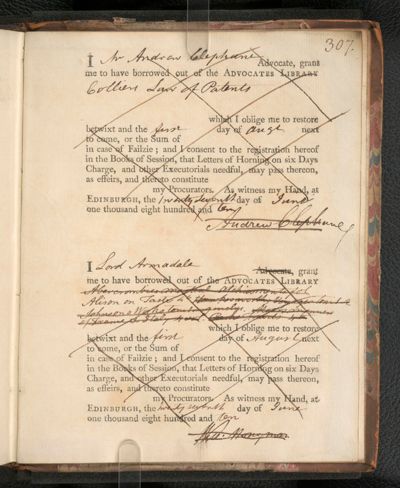 307.
I Mr Andrew Clephane Advocate, grant
me to have borrowed out of the ADVOCATES LIBRARY
Colliers Law of Patents
which I oblige me to restore
betwixt and the first day of Augt next
to come, or the Sum of
in case of Failzie; and I consent to the registration hereof
in the Books of Session, that Letters of Horning on six Days
Charge, and other Executorials needful, may pass thereon,
as effeirs, and thereto constitute
my Procurators. As witness my Hand, at
EDINBURGH, the twenty seventh day of June
one thousand eight hundred and ten
Andrew Clephane
I Lord Armadale Advocate, grant
me to have borrowed out of the ADVOCATES LIBRARY
Abercrombie
Alison on Taste
Johnson
which I oblige me to restore
betwixt and the first day of August next
to come, or the Sum of
in case of Failzie; and I consent to the registration hereof
in the Books of Session, that Letters of Horning on six Days
Charge, and other Executorials needful, may pass thereon,
as effeirs, and thereto constitute
my Procurators. As witness my Hand, at
EDINBURGH, the twenty seventh day of June
one thousand eight hundred and ten
Wm. Honyman